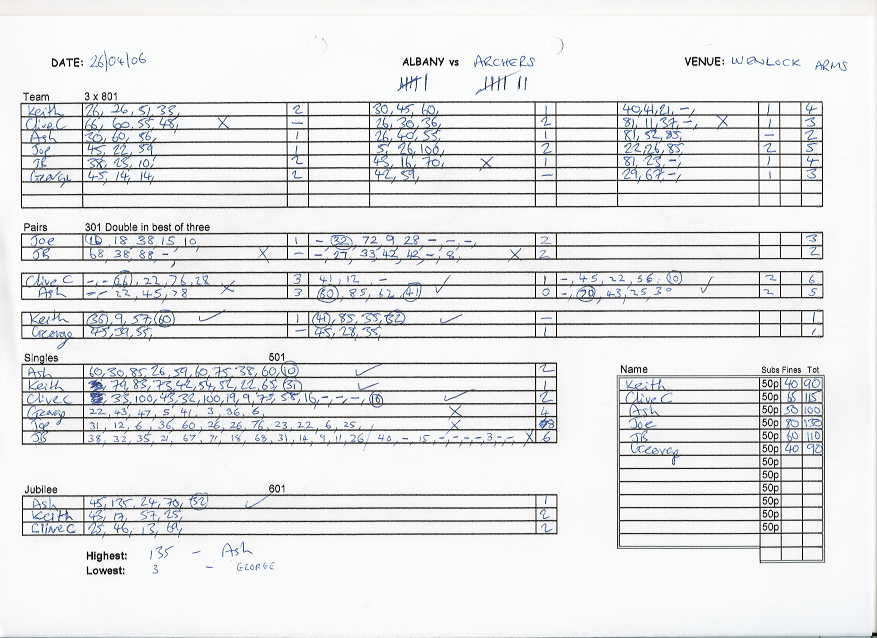 DATE: 26/04/06 ALBANY vs ARCHERS VENUE: WENLOCK ARMS
Team 3 x 801
Keith 26, 26, 51, 33, 2 30, 45, 60, 1 40, 41, 21, -, 1 4
Clive C 66, 60, 55, 45, X - 26, 30, 36, 2 81, 11, 37, -, X 1 3
Ash 30, 60, 56, 1 26, 40, 55, 1 81, 52, 85, - 2
Joe 45, 22, 59 1 5, 26, 100, 2 22, 26, 85, 2 5
JB 38, 25, 10, 2 45, 16, 70, X 1 81, 23, -, 1 4
George 45, 14, 14, 2 42, 59, - 29, 67, -, 1 3
Pairs 301 Double in best of three
Joe 18 38 15 10 1 -, (32), 72, 9, 28 -, -, -, 2 3
JB 68, 38, 88, -, X - -, 27, 33, 42, 42, -, 8, X 2 2
Clive C -, - (66), 22, 76, 28 X 3 41, 12, - ✓ 1 -, 45, 22, 56, (10) ✓ 2 6
Ash -, - 22, 45, 78 3 (60), 85, 62, (41) 0 -, (20), 43, 25, 30 2 5
Keith (36), 9, 57, (60) ✓ 1 (41), 85, 35, (32) ✓ - 1
George 45, 39, 55, - 45, 28, 35, 1
Singles 501
Ash 60, 30, 85, 26, 59, 60, 75, 38, 60, (10) ✓ 2
Keith 79, 83, 73, 42, 54, 52, 22, 65, (31) ✓ 1
Clive C 33, 100, 43, 32, 100, 19, 9, 73, 58, 16, -, -, -, (18) ✓ 2
George 22, 43, 47, 5, 41, 3, 36, 6, X 4
Joe 31, 12, 6, 36, 60, 26, 26, 76, 23, 22, 6, 25, X 3
JB 38, 32, 35, 21, 67, 71, 18, 68, 31, 14, 9, 11, 26, 40, -, 15, -, -, -, -, 3, -, X 6
Name Subs Fines Tot
Keith 50p 40 90
Clive C 50p 65 115
Ash 50p 50 100
Joe 50p 80 130
JB 50p 60 110
George 50p 40 90
50p
50p
50p
50p
50p
50p
Jubilee 601
Ash 45, 135, 24, 70, (52) ✓ 1
Keith 43, 17, 57, 25, 2
Clive C 25, 46, 13, 69, 2
Highest: 135 - Ash
Lowest: 3 - GEORGE